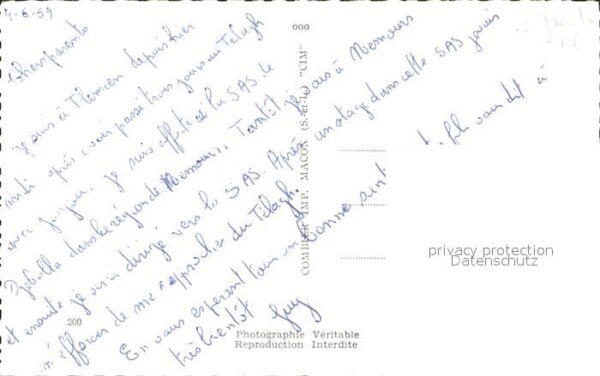 4-6-59
Chers parents
Je suis à Tlemcen depuis hier
midi après avoir passé trois jours sur Télagh
avec Je suis affecté à la SAS de
dans la région de Nemours. Tantôt je vais à Nemours
et ensuite je serai dirigé vers la SAS. Après un stage dans cette SAS je vais
m'efforcer de me rapprocher du Télagh.
En vous espérant tous en bonne santé votre fils vous dit à
très bientôt Guy
COMBIER IMP. MACON (S.-et-L.) "CIM"
200
Photographie Véritable
Reproduction Interdite
privacy protection
Datenschutz